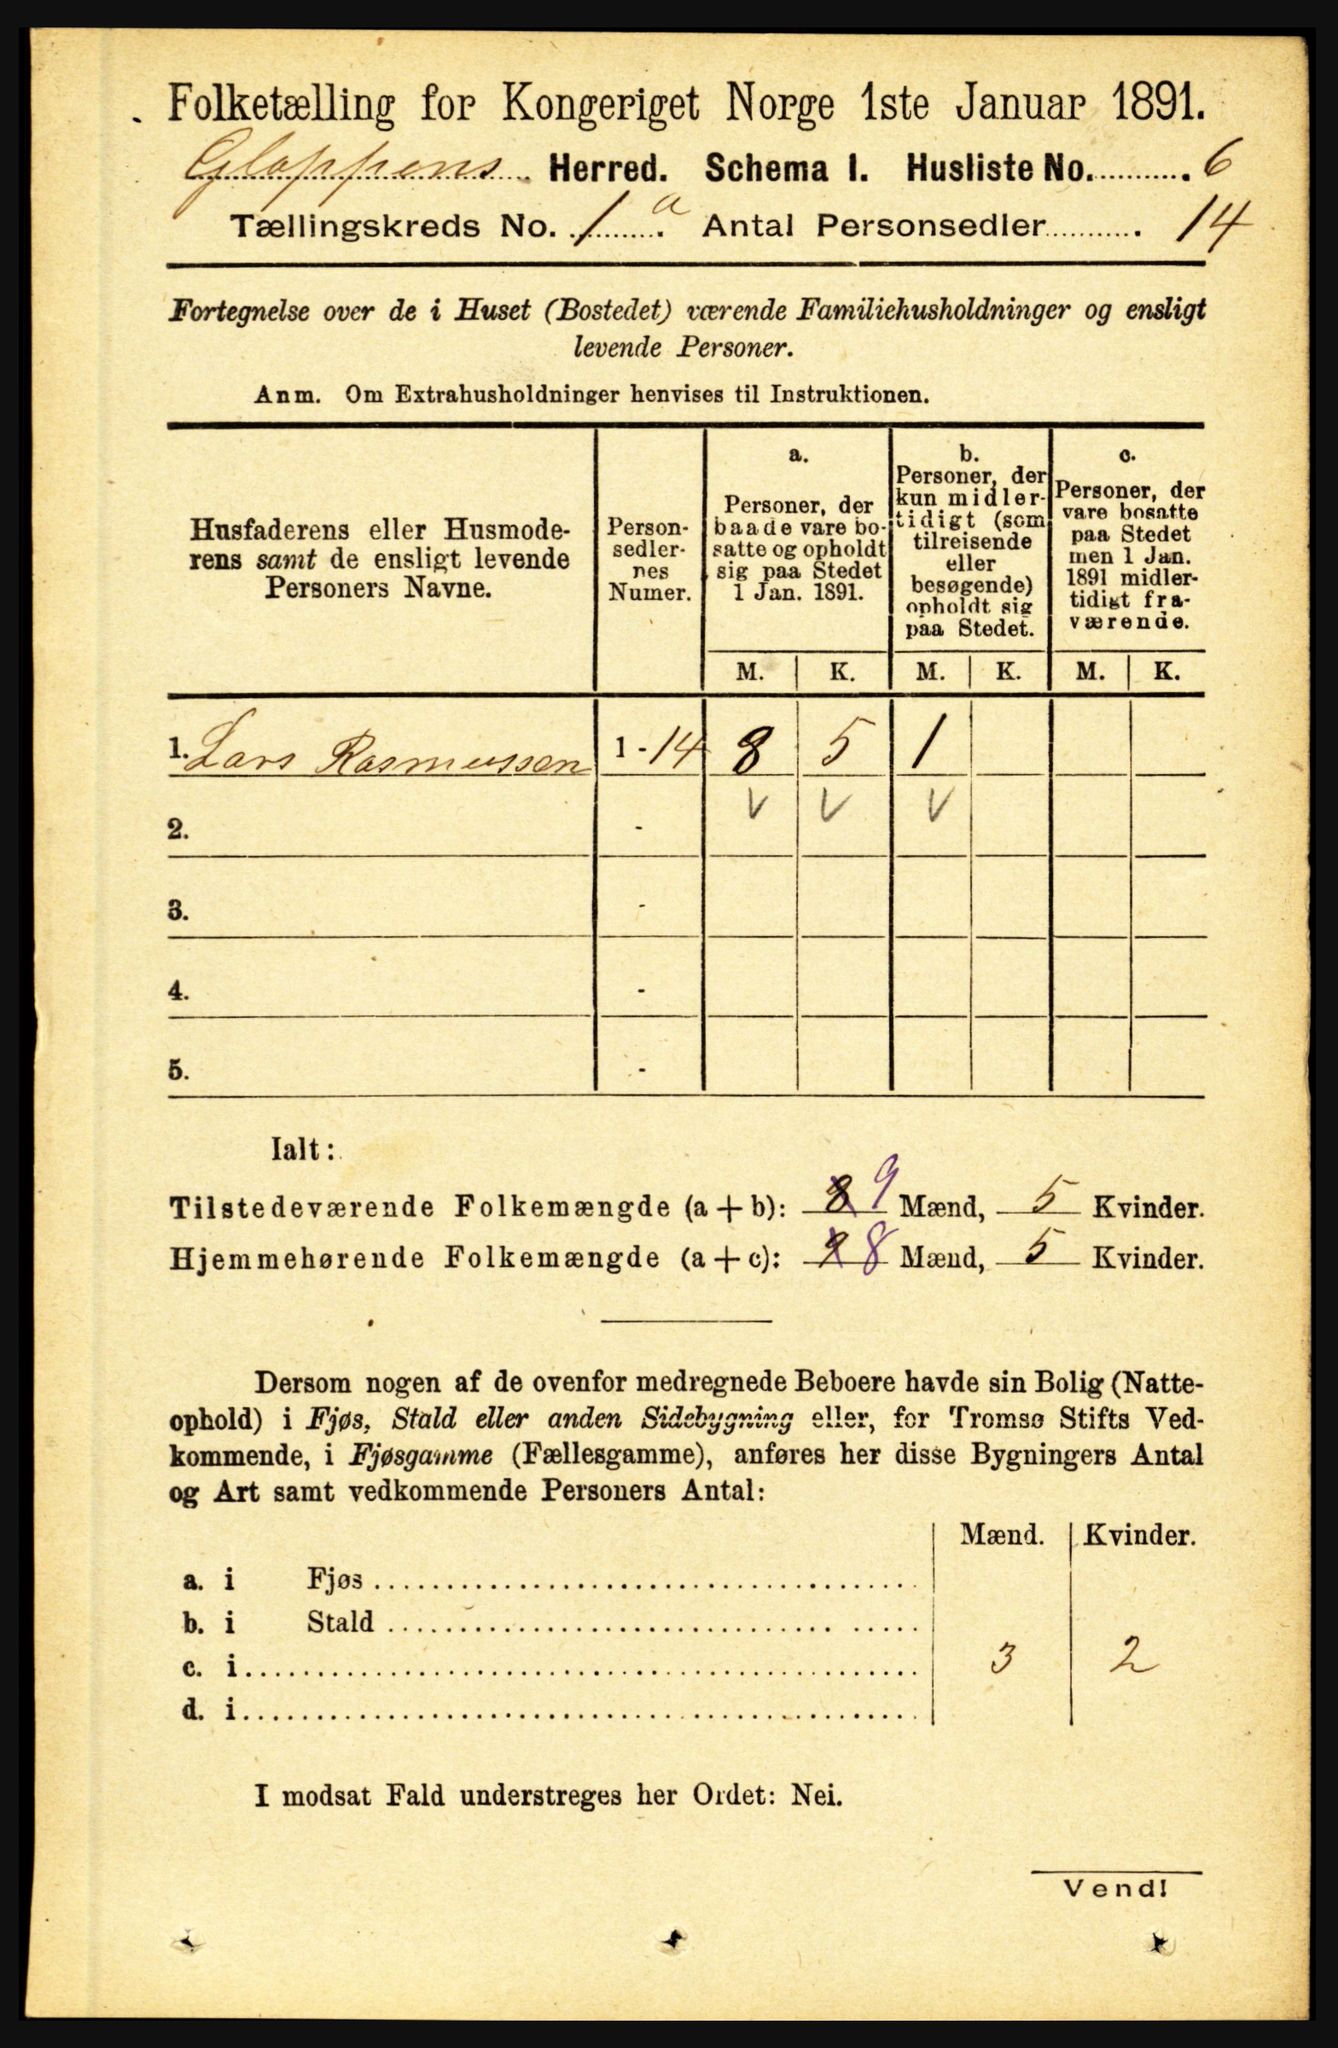 Folketælling for Kongeriget Norge 1ste Januar 1891.
Gloppens Herred. Schema I. Husliste No. 6
Tællingskreds No. 1 a Antal Personsedler 14
Fortegnelse over de i Huset (Bostedet) værende Familiehusholdninger og ensligt
levende Personer.
Anm. Om Extrahusholdninger henvises til Instruktionen.
Husfaderens eller Husmode-
rens samt de ensligt levende
Personers Navne.
Person-
sedler-
nes
Numer.
a.
Personer, der
baade vare bo-
satte og opholdt
sig paa Stedet
1 Jan. 1891.
b.
Personer, der
kun midler-
tidigt (som
tilreisende
eller
besøgende)
opholdt sig
paa Stedet.
c.
Personer, der
vare bosatte
paa Stedet
men 1 Jan.
1891 midler-
tidigt fra-
værende.
M. K. M. K. M. K.
1. Lars Rasmussen 1 - 14 8 5 1
2. - V V V
3. -
4. -
5. -
Ialt:
Tilstedeværende Folkemængde (a + b): 8 9 Mænd, 5 Kvinder.
Hjemmehørende Folkemængde (a + c): 9 8 Mænd, 5 Kvinder.
Dersom nogen af de ovenfor medregnede Beboere havde sin Bolig (Natte-
ophold) i Fjøs, Stald eller anden Sidebygning eller, for Tromsø Stifts Ved-
kommende, i Fjøsgamme (Fællesgamme), anføres her disse Bygningers Antal
og Art samt vedkommende Personers Antal:
Mænd. Kvinder.
a. i Fjøs
b. i Stald
c. i 3 2
d. i
I modsat Fald understreges her Ordet: Nei.
Vend!